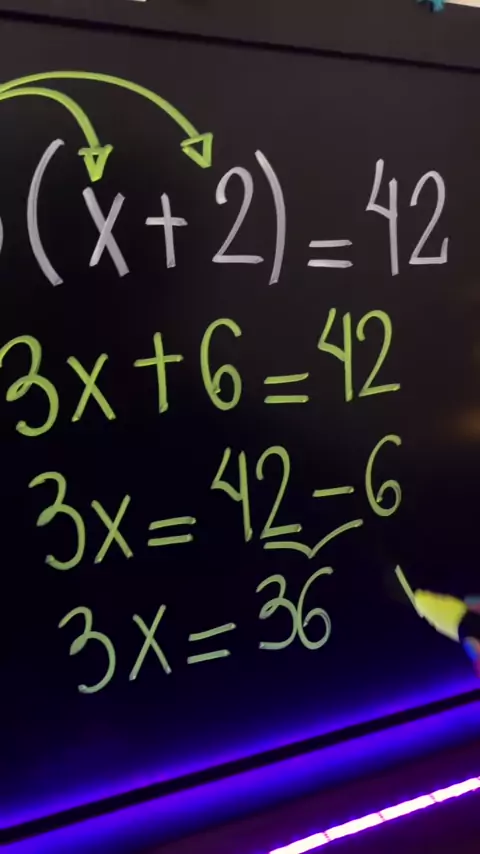 (x+2)=42
3x+6=42
3x=42-6
3x=36